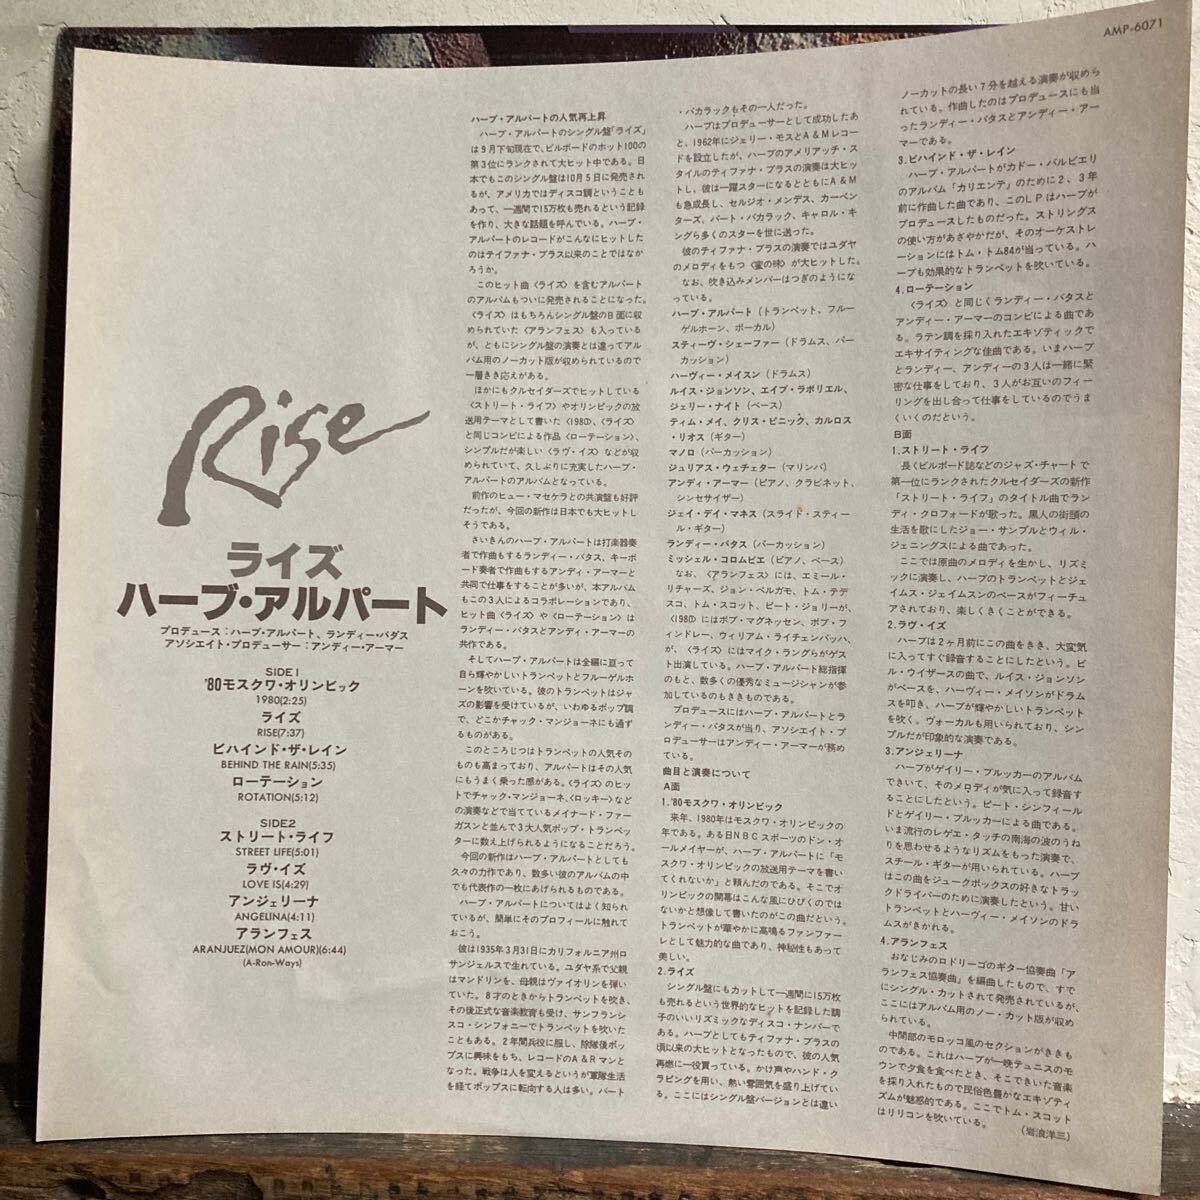 AMP-6071
Rise
ライズ
ハーブ・アルパート
プロデュース：ハーブ・アルパート、ランディー・バダス
アソシエイト・プロデューサー：アンディー・アーマー
SIDE1
'80モスクワ・オリンピック
1980(2:25)
ライズ
RISE(7:37)
ビハインド・ザ・レイン
BEHIND THE RAIN(5:35)
ローテーション
ROTATION(5:12)
SIDE2
ストリート・ライフ
STREET LIFE(5:01)
ラヴ・イズ
LOVE IS(4:29)
アンジェリーナ
ANGELINA(4:11)
アランフェス
ARANJUEZ(MON AMOUR)(6:44)
(A-Ron-Ways)
ハーブ・アルパートの人気再上昇
ハーブ・アルパートのシングル盤「ライズ」
は9月下旬現在で、ビルボードのホット100の
第3位にランクされて大ヒット中である。日
本でもこのシングル盤は10月5日に発売され
るが、アメリカではディスコ調ということも
あって、一週間で15万枚も売れるという記録
を作り、大きな話題を呼んでいる。ハーブ・
アルパートのレコードがこんなにヒットした
のはテイファナ・ブラス以来のことではなか
ろうか。
このヒット曲〈ライズ〉を含むアルパート
のアルバムもついに発売されることになった。
〈ライズ〉はもちろんシングル盤のB面に収
められていた〈アランフェス〉も入っている
が、ともにシングル盤の演奏とは違ってアル
バム用のノーカット版が収められているので
一層きき応えがある。
ほかにもクルセイダーズでヒットしている
〈ストリート・ライフ〉やオリンピックの放
送用テーマとして書いた〈1980〉、〈ライズ〉
と同じコンビによる作品〈ローテーション〉、
シンプルだが楽しい〈ラヴ・イズ〉などが収
められていて、久しぶりに充実したハーブ・
アルパートのアルバムとなっている。
前作のヒュー・マセケラとの共演盤も好評
だったが、今回の新作は日本でも大ヒットし
そうである。
さいきんのハーブ・アルパートは打楽器奏
者で作曲もするランディー・バダス、キーボ
ード奏者で作曲もするアンディ・アーマーと
共同で仕事をすることが多いが、本アルバム
もこの3人によるコラボレーションであり、
ヒット曲〈ライズ〉や〈ローテーション〉は
ランディー・バダスとアンディ・アーマーの
共作である。
そしてハーブ・アルパートは全編に亘って
自ら輝やかしいトランペットとフルーゲルホ
ーンを吹いている。彼のトランペットはジャ
ズの影響を受けているが、いわゆるポップ調
で、どこかチャック・マンジョーネにも通ず
るものがある。
このところじつはトランペットの人気その
ものも高まっており、アルパートはその人気
にもうまく乗った感がある。〈ライズ〉のヒッ
トでチャック・マンジョーネ、〈ロッキー〉など
の演奏などで当てているメイナード・ファー
ガスンと並んで3大人気ポップ・トランペッ
ターに数え上げられるようになることだろう。
今回の新作はハーブ・アルパートとしても
久々の力作であり、数多い彼のアルバムの中
でも代表作の一枚にあげられるものである。
ハーブ・アルパートについてはよく知られ
ているが、簡単にそのプロフィールに触れて
おこう。
彼は1935年3月31日にカリフォルニア州ロ
サンジェルスで生れている。ユダヤ系で父親
はマンドリンを、母親はヴァイオリンを弾い
ていた。8才のときからトランペットを吹き、
その後正式な音楽教育も受け、サンフランシ
スコ・シンフォニーでトランペットを吹いた
こともある。2年間兵役に服し、除隊後ポッ
プスに興味をもち、レコードのA&Rマンと
なった。戦争は人を変えるというが軍隊生活
を経てポップスに転向する人は多い。バート
・バカラックもその一人だった。
ハーブはプロデューサーとして成功したあ
と、1962年にジェリー・モスとA&Mレコー
ドを設立したが、ハーブのアメリアッチ・ス
タイルのティファナ・ブラスの演奏は大ヒッ
トし、彼は一躍スターになるとともにA&M
も急成長し、セルジオ・メンデス、カーペン
ターズ、バート・バカラック、キャロル・キ
ングら多くのスターを世に送った。
彼のティファナ・ブラスの演奏ではユダヤ
のメロディをもつ〈蜜の味〉が大ヒットした。
なお、吹き込みメンバーはつぎのようにな
っている。
ハーブ・アルパート（トランペット、フルー
ゲルホーン、ボーカル）
スティーヴ・シェーファー（ドラムス、パー
カッション）
ハーヴィー・メイスン（ドラムス）
ルイス・ジョンソン、エイブ・ラボリエル、
ジェリー・ナイト（ベース）
ティム・メイ、クリス・ピニック、カルロス
・リオス（ギター）
マノロ（パーカッション）
ジュリアス・ウェチェター（マリンバ）
アンディ・アーマー（ピアノ、クラビネット、
シンセサイザー）
ジェイ・デイ・マネス（スライド・スティー
ル・ギター）
ランディー・バダス（パーカッション）
ミッシェル・コロムビエ（ピアノ、ベース）
なお、〈アランフェス〉には、エミール・
リチャーズ、ジョン・ベルガモ、トム・テデ
スコ、トム・スコット、ピート・ジョリーが、
〈1980〉にはボブ・マグネッセン、ボブ・フ
ィンドレー、ウィリアム・ライチェンバッハ、
が、〈ライズ〉にはマイク・ラングらがゲス
ト出演している。ハーブ・アルパート総指揮
のもと、数多くの優秀なミュージシャンが参
加しているのもききものである。
プロデュースにはハーブ・アルパートとラ
ンディー・バダスが当り、アソシエイト・プ
ロデューサーはアンディー・アーマーが務め
ている。
曲目と演奏について
A面
1.'80モスクワ・オリンピック
来年、1980年はモスクワ・オリンピックの
年である。ある日NBCスポーツのドン・オ
ールメイヤーが、ハーブ・アルパートに「モ
スクワ・オリンピックの放送用テーマを書い
てくれないか」と頼んだのである。そこでオ
リンピックの開幕はこんな風にひびくのでは
ないかと想像して書いたのがこの曲だという。
トランペットが華やかに高鳴るファンファー
レとして魅力的な曲であり、神秘性もあって
美しい。
2.ライズ
シングルにもカットして一週間に15万枚
も売れるという世界的なヒットを記録した調
子のいいリズミックなディスコ・ナンバーで
ある。ハーブとしてもティファナ・ブラスの
頃以来の大ヒットとなったもので、彼の人気
再燃に一役買っている。かけ声やハンド・ク
ラピングを用い、熱い雰囲気を盛り上げてい
る。ここにはシングル盤バージョンとは違い
ノーカットの長い7分を越える演奏が収めら
れている。作曲したのはプロデュースにも当
ったランディー・バダスとアンディー・アー
マーである。
3.ビハインド・ザ・レイン
ハーブ・アルパートがカドー・バルビエリ
のアルバム「カリエンテ」のために2、3年
前に作曲した曲であり、このLPはハーブが
プロデュースしたものだった。ストリングス
の使い方があざやかだが、そのオーケストレ
ーションにはトム・トム84が当っている。ハ
ーブも効果的なトランペットを吹いている。
4.ローテーション
〈ライズ〉と同じくランディー・バダスと
アンディー・アーマーのコンビによる曲であ
る。ラテン調を採り入れたエキゾティックで
エキサイティングな佳曲である。いまハーブ
とランディー、アンディーの3人は一緒に緊
密な仕事をしており、3人がお互いのフィー
リングを出し合って仕事をしているのでうま
くいくのだという。
B面
1.ストリート・ライフ
長くビルボード誌などのジャズ・チャートで
第一位にランクされたクルセイダーズの新作
「ストリート・ライフ」のタイトル曲でラン
ディ・クロフォードが歌った。黒人の街頭の
生活を歌にしたジョー・サンプルとウィル・
ジェニングスによる曲であった。
ここでは原曲のメロディを生かし、リズミ
ックに演奏し、ハーブのトランペットとジェ
イムス・ジェイムスンのベースがフィーチュ
アされており、楽しくきくことができる。
2.ラヴ・イズ
ハーブは2ヶ月前にこの曲をきき、大変気
に入ってすぐ録音することにしたという。ビ
ル・ウイザースの曲で、ルイス・ジョンソン
がベースを、ハーヴィー・メイソンがドラム
スを叩き、ハーブが輝やかしいトランペット
を吹く。ヴォーカルも用いられており、シン
プルだが印象的な演奏である。
3.アンジェリーナ
ハーブがゲイリー・ブルッカーのアルバム
できいて、そのメロディが気に入って録音す
ることにしたという。ピート・シンフィール
ドとゲイリー・ブルッカーによる曲である。
いま流行のレゲエ・タッチの南海の波のうね
りを思わせるようなリズムをもった演奏で、
スチール・ギターが用いられている。ハーブ
はこの曲をジュークボックスの好きなトラッ
クドライバーのために演奏したという。甘い
トランペットとハーヴィー・メイソンのドラ
ムスがきかれる。
4.アランフェス
おなじみのロドリーゴのギター協奏曲「ア
ランフェス協奏曲」を編曲したもので、すで
にシングル・カットされて発売されているが、
ここにはアルバム用のノー・カット版が収め
られている。
中間部のモロッコ風のセクションがききも
のである。これはハーブが一晩テュニスのモ
ウンで夕食を食べたとき、そこできいた音楽
を採り入れたもので民俗色豊かなエキゾティ
ズムが魅惑的である。ここでトム・スコット
はリリコンを吹いている。
（岩浪洋三）